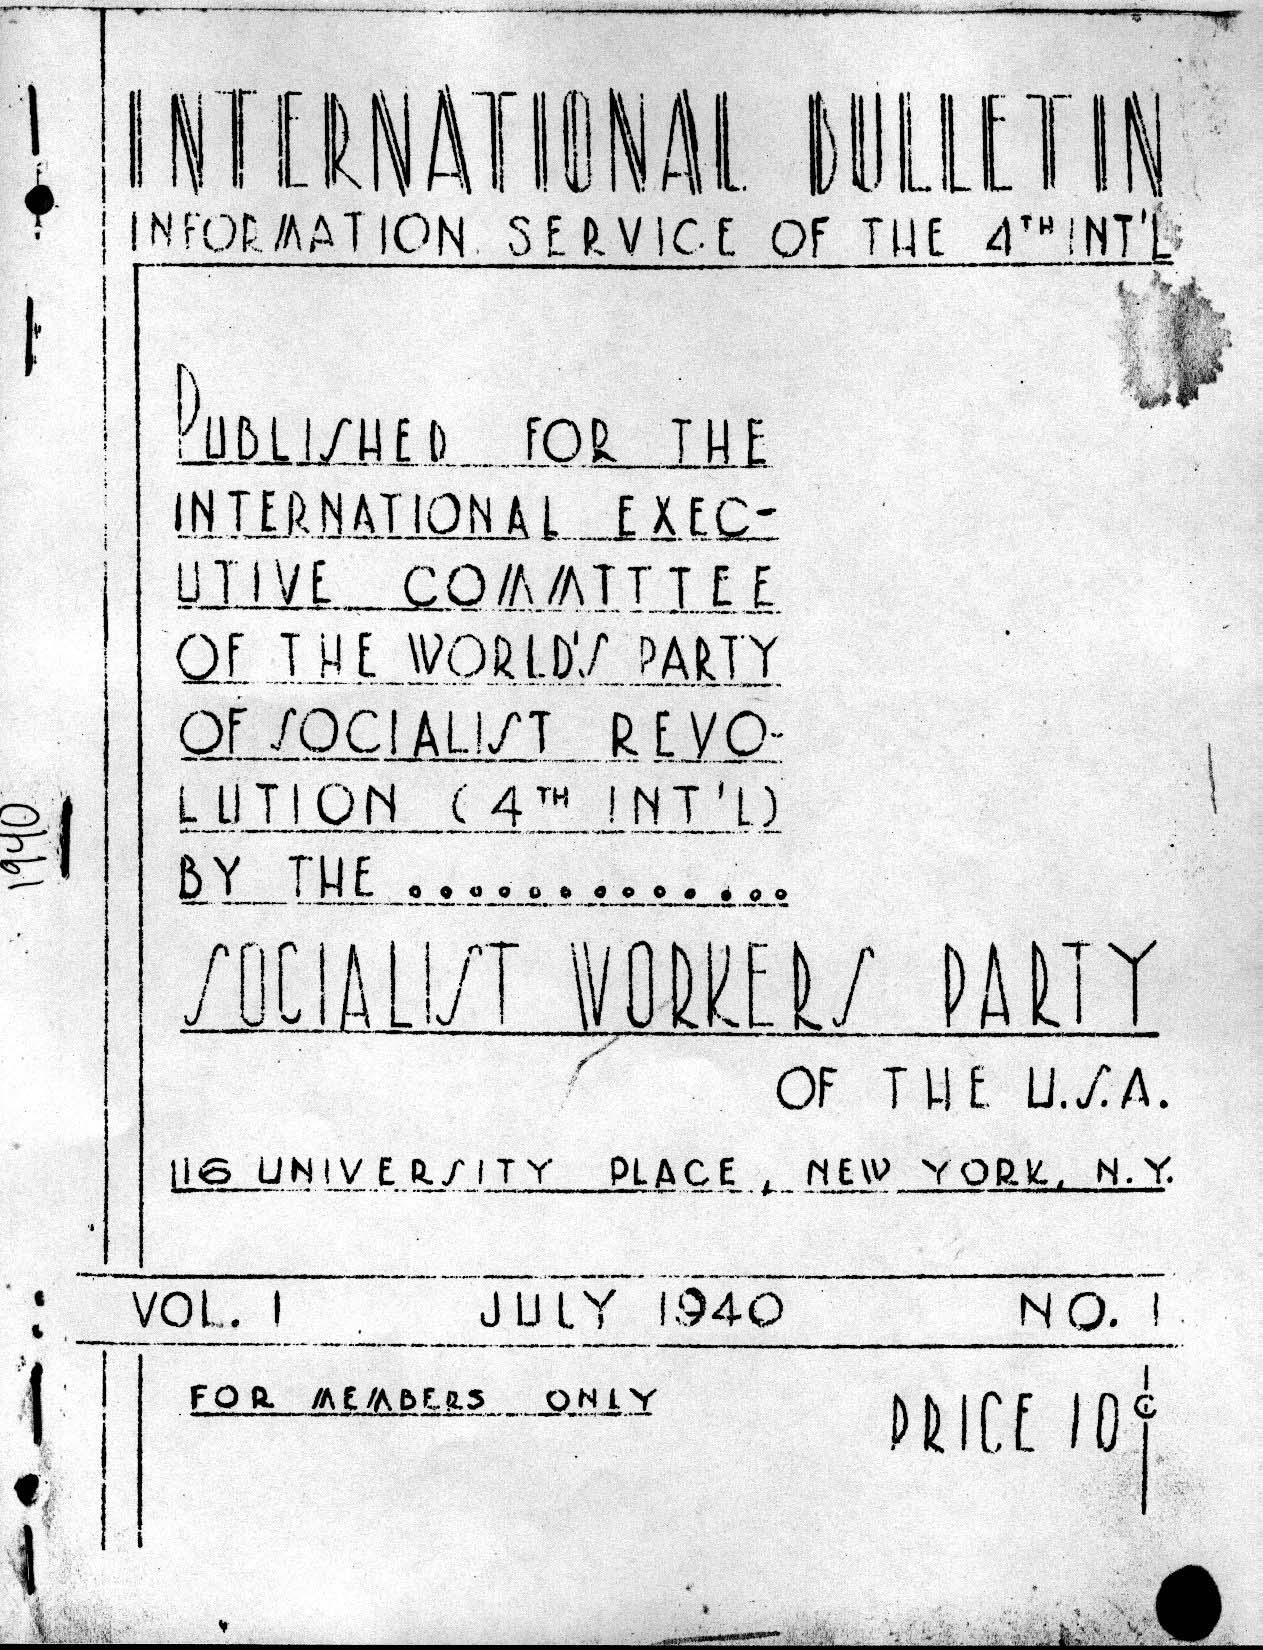 INTERNATIONAL BULLETIN
INFORMATION SERVICE OF THE 4TH INT'L
PUBLISHED FOR THE
INTERNATIONAL EXEC-
UTIVE COMMTTTEE
OF THE WORLD'S PARTY
OF SOCIALIST REVO-
LUTION (4TH INT'L)
BY THE .............
SOCIALIST WORKERS PARTY
OF THE U.S.A.
116 UNIVERSITY PLACE, NEW YORK, N.Y.
VOL. 1 JULY 1940 NO. 1
FOR MEMBERS ONLY PRICE 10¢
1940